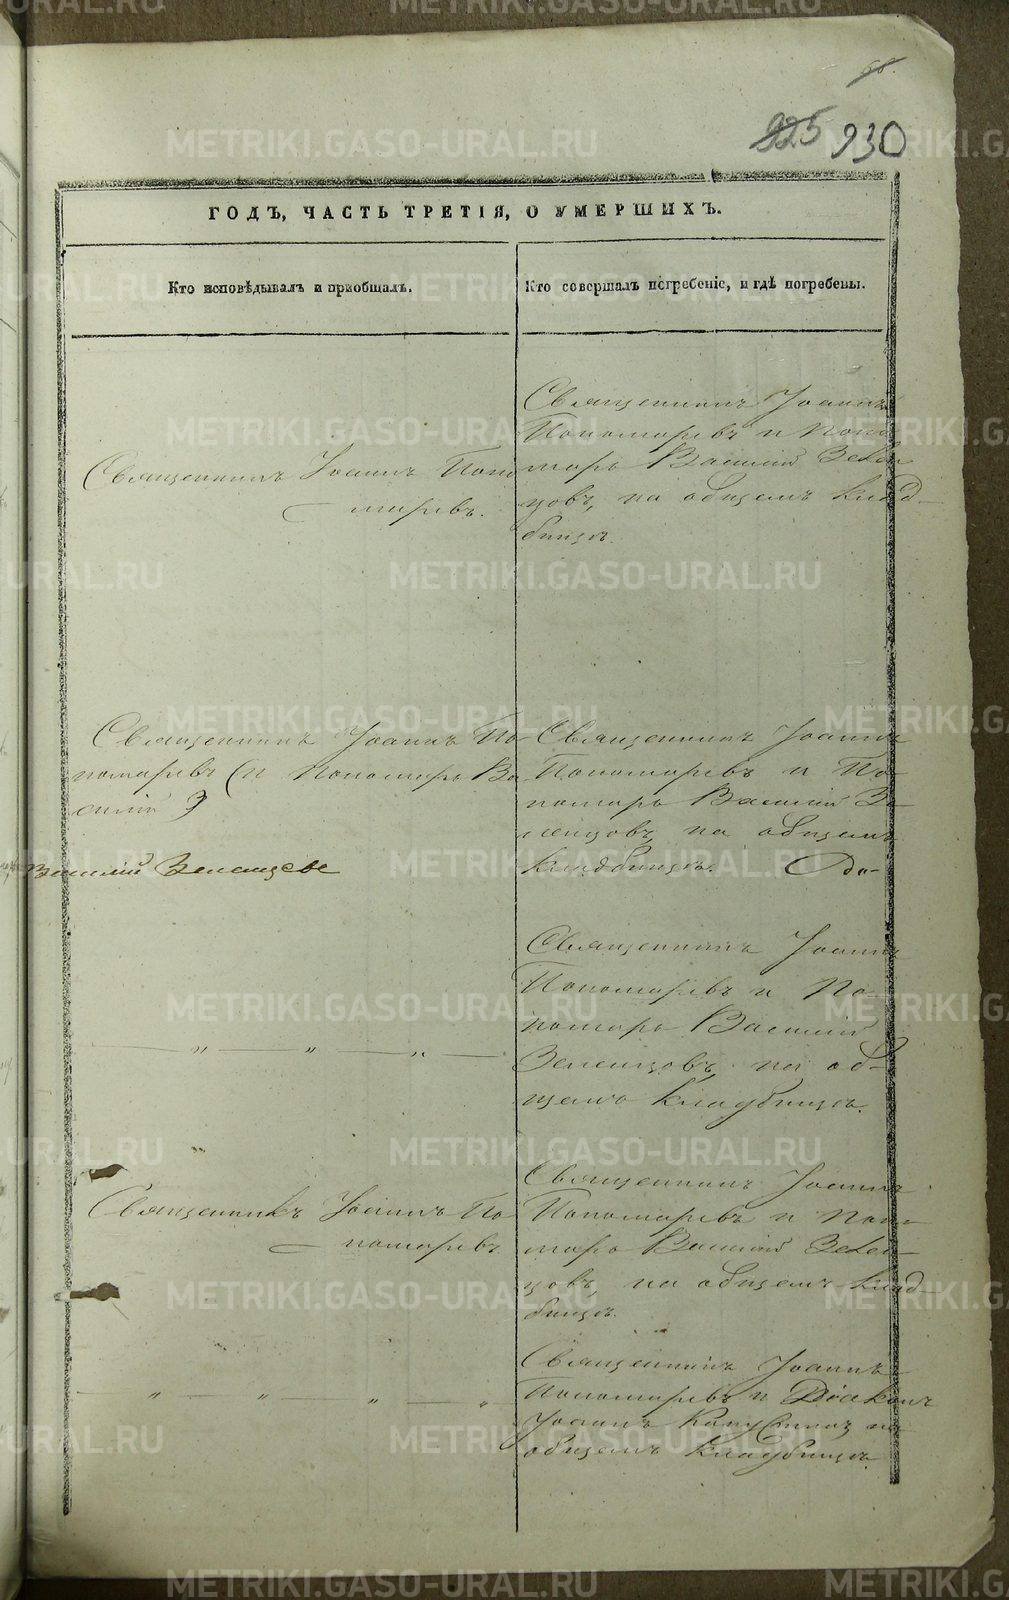 925 930
ГОДЪ, ЧАСТЬ ТРЕТІЯ, О УМЕРШИХЪ.
Кто исповѣдывалъ и пріобщалъ.
Кто совершалъ погребеніе, и гдѣ погребены.
Священникъ Іоаннъ Поно
маревъ.
Священникъ Іоаннъ
Пономаревъ и Поно
марь Василій Зелен
цовъ, на общемъ клад
бищѣ.
Священникъ Іоаннъ По-
номаревъ (и Пономарь Ва
силій З
Василій Зеленцевъ
Священникъ Іоаннъ
Пономаревъ и По-
номарь Василій Зе-
ленцовъ, на общемъ
кладбищѣ.
Священникъ Іоаннъ
Пономаревъ и По-
номарь Василій
Зеленцовъ, на об-
щемъ кладбищѣ.
— „ — „ — „ —
Священникъ Іоаннъ По
номаревъ
Священникъ Іоаннъ
Пономаревъ и Поно-
марь Василій Зелен-
цовъ, на общемъ клад-
бищѣ.
— „ — „ — „ — „
Священникъ Іоаннъ
Пономаревъ и Діаконъ
Іоаннъ Капустинъ на
общемъ кладбищѣ.
METRIKI.GASO-URAL.RU